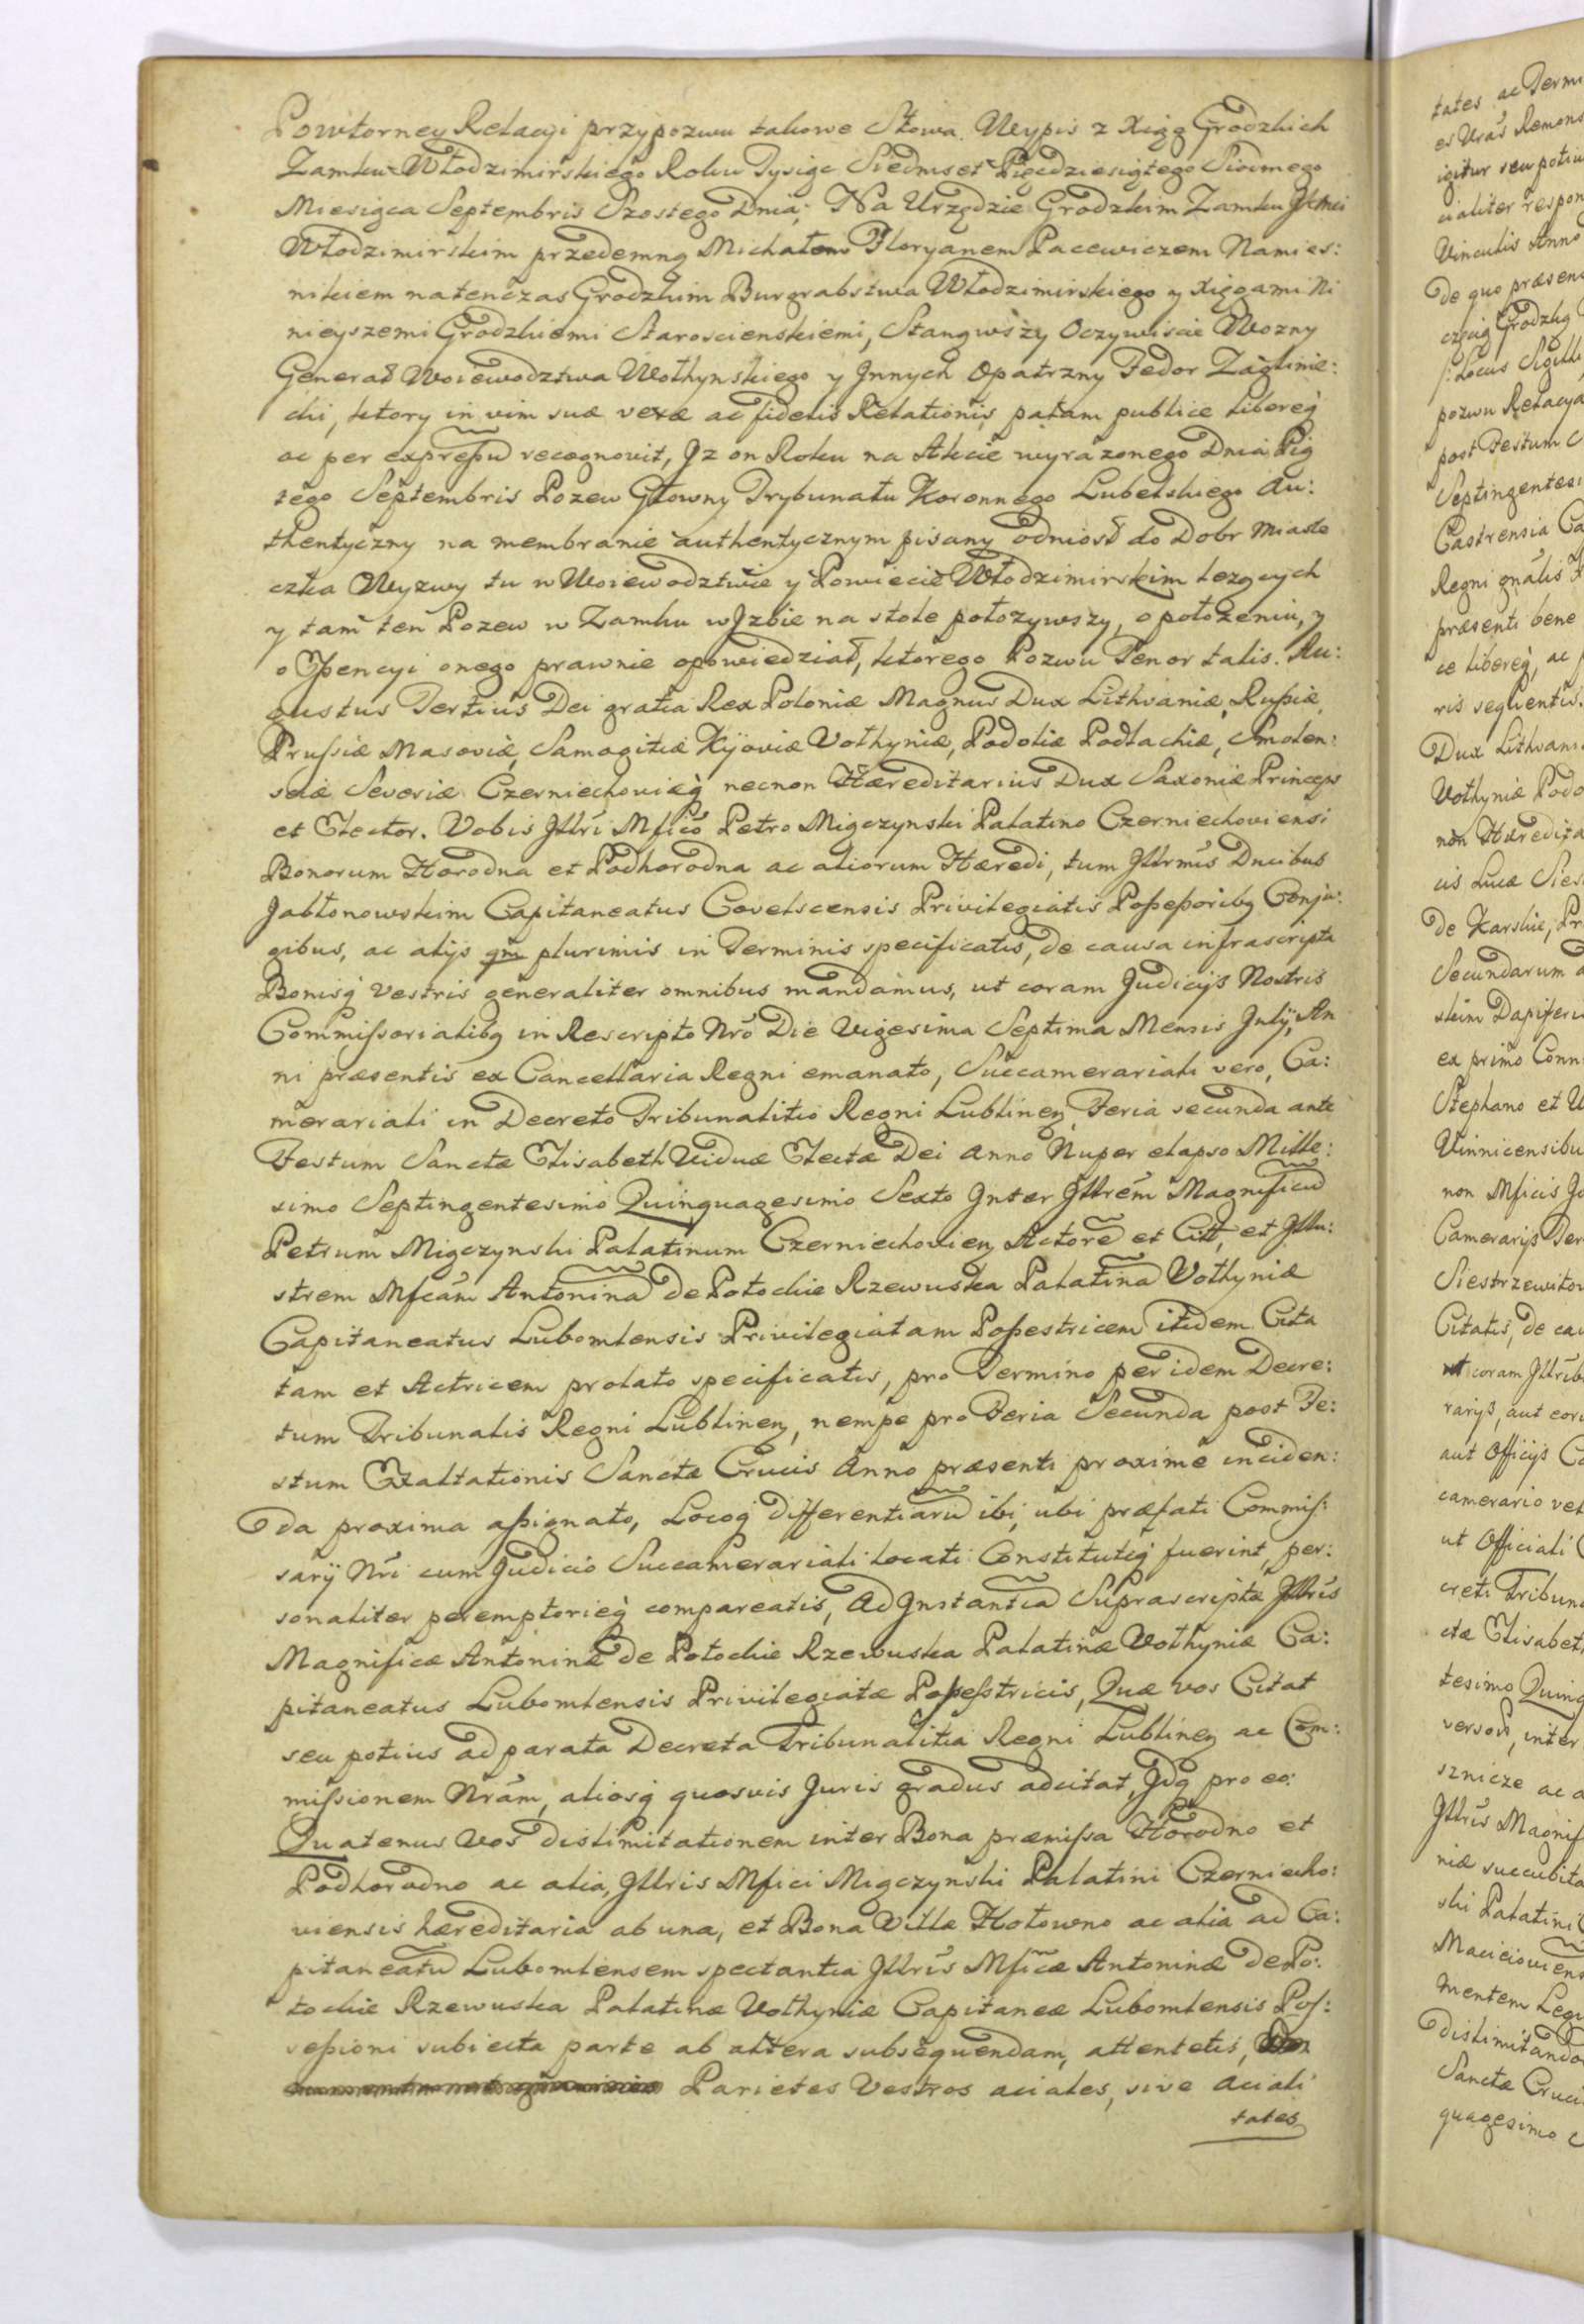 Powtorney Relacyi przy pozwu takowe Słowa. Wypis z Xiąg Grodzkich
Zamku Włodzimirskiego Roku Tysiąc Siedmset Pięcdziesiątego Siodmego
Miesiąca Septembris Szostego Dnia; Na Urzędzie Grodzkim Zamku JKmci
Włodzimirskim przedemną Michałem Floryanem Pacewiczem Namies:
nikiem natenczas Grodzkim Burgrabstwa Włodzimirskiego y Xięgami Ni
nieyszemi Grodzkiemi Staroscienskiemi, Stanąwszy Oczywiscie Wozny
Generał Woiewodztwa Wołhynskiego y Jnnych Opatrzny Fedor Zagłinie:
cki, ktory in vim suæ veræ ac fidelis Relationis palam publice libereq
ac per expressu recognovit, Jz on Roku na Akcie wyrazonego Dnia Pią
tego Septembris Pozew Głowny Trybunału Koronnego Lubelskiego Au:
thentyczny na membranie authentycznym pisany odniosł do Dobr Miaste
czka Wyzwy tu w Woiewodztwie y Powiecie Włodzimirskim lezących
y tam ten Pozew w Zamku w Jzbie na stole połozywszy, o połozeniu, y
o Jstencyi onego prawnie opowiedział, ktorego Pozwu Tenor talis. Au:
gustus Tertius Dei gratia Rex Poloniæ Magnus Dux Lithvaniæ, Russiæ,
Prussiæ Masoviæ, Samogitiæ Kijoviæ Volhyniæ, Podoliæ Podlachiæ, Smolen:
sciæ Severiæ Czerniechoviæq necnon Hæreditarius Dux Saxoniæ Princeps
et Elector. Vobis Jllri Mfico Petro Miączynski Palatino Czerniechoviensi
Bonorum Horodna et Podhorodna ac aliorum Hæredi, tum Jllrmis Ducibus
Jabłonowskim Capitaneatus Covelscensis Privilegiatis Possessoribq Conju:
gibus, ac alijs qm plurimis in Terminis specificatis, de causa infrascripta
Bonisq vestris generaliter omnibus mandamus, ut coram Judicijs Nostris
Commissorialibq in Rescripto Nro Die Vigesima Septima Mensis Julij, An
ni præsentis ex Cancellaria Regni emanato, Succamerariali vero, Ca:
merariali in Decreto Tribunalitio Regni Lublinen Feria secunda ante
Festum Sanctæ Elisabeth Viduæ Electæ Dei Anno Nuper elapso Mille:
simo Septingentesimo Quinquagesimo Sexto Jnter Jllrem Magnificu
Petrum Miączynski Palatinum Czerniechovien Actore et Citt, et Jllu:
strem Mficam Antonina de Potockie Rzewuska Palatina Volhyniæ
Capitaneatus Lubomlensis Privilegiatam Possestricem itidem Cita
tam et Actricem prolato specificatis, pro Termino per idem Decre:
tum Tribunalis Regni Lublinen, nempe pro Feria Secunda post Fe:
stum Exaltationis Sanctæ Crucis Anno præsenti proxime inciden:
da proxima assignato, Locoq Differentiaru ibi, ubi præfati Commis:
sarij Nri cum Judicio Succamerariali locati Constitutiq fuerint, per:
sonaliter peremptorieq compareatis, Ad Jnstantia Suprascriptæ Jllris
Magnificæ Antoninæ de Potockie Rzewuska Palatinæ Volhyniæ Ca:
pitaneatus Lubomlensis Privilegiatæ Possestricis, Quæ vos Citat
seu potius ad parata Decreta Tribunalitia Regni Lublinen ac Com:
missionem Nram, aliosq quosvis Juris gradus adcitat, Jdq pro eo:
Quatenus Vos dislimitationem inter Bona præmissa Horodno et
Podhorodno ac alia, Jllris Mfici Miączynski Palatini Czerniecho:
viensis hæreditaria ab una, et Bona Villæ Hołowno ac alia ad Ca:
pitaneatu Lubomlensem spectantia Jllris Mficæ Antoninæ de Po:
tockie Rzewuska Palatinæ Volhyniæ Capitaneæ Lubomlensis Pos:
sessioni subiecta parte ab altera subsequendam, attentetis,
Parietes Vestros aciales, sive aciali
tates
tates ac Termi
es Vras Remons
igitur seu potiu
cialiter respon
Vinculis Anno
De quo præsen
częcią Grodzką
/: Locus Sigilli
pozwu Relacya
post Festum
Septingentesi
Castrensia Ca
Regni gnalis
præsenti bene
ce libereq, ac
ris sequentis.
Dux Lithvani
Volhyniæ Podo
non Hæredita
cis Lucæ Sies
de Karskie, Pr
Secundarum
skim Dapiferi
ex primo Conn
Stephano et
Vinnicensibu
non Mficis Jo
Camerarijs Ter
Siestrzewitow
Citatis, de cau
ut coram Jllrib
rarijs, aut eor
aut Officijs Ca
camerario vel
ut Officiali
creti Tribuna
ctæ Elisabet
tesimo Quinq
verson, inter
sznicze ac a
Jllris Magnif
niæ succubita
ski Palatini
Macieioviens
mentem Legu
dislimitando
Sanctæ Cruci
quagesimo